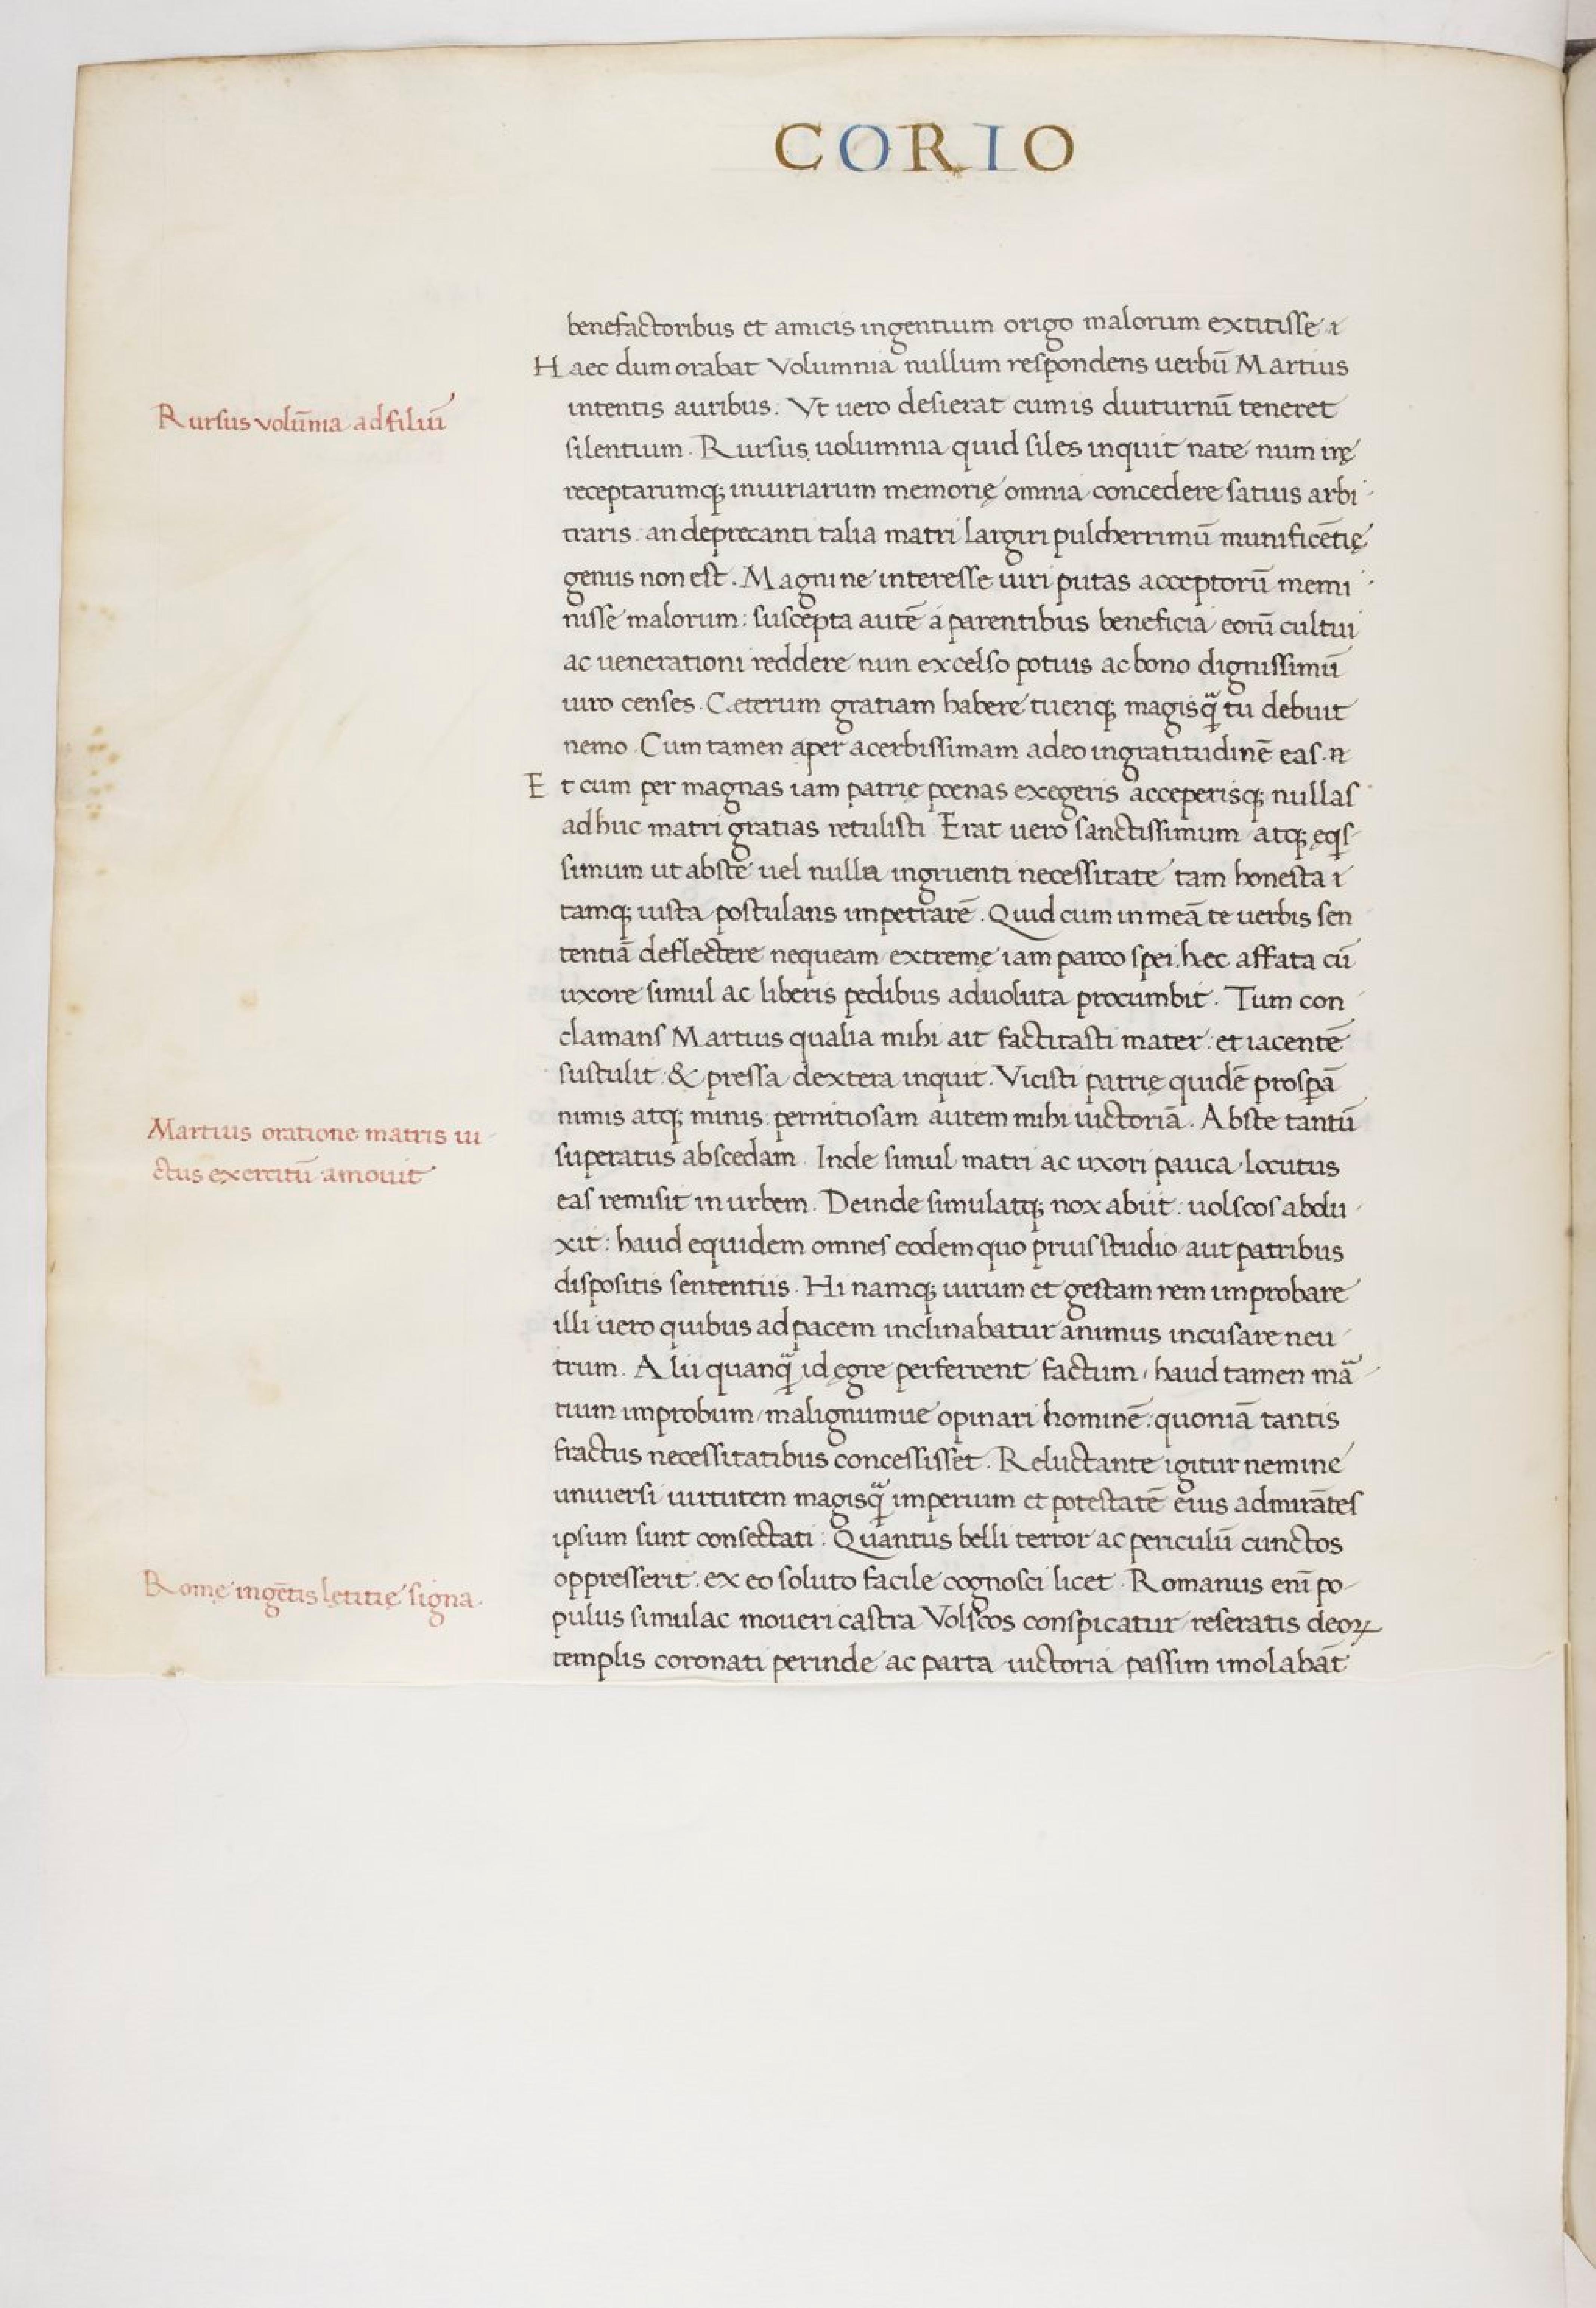 CORIO
benefactoribus et amicis ingentium origo malorum extitisse
Haec dum orabat Volumnia nullum respondens uerbū Martius
intentis auribus. Vt uero desierat cum is diuturnū teneret
Rursus volūmia ad filiū
silentium. Rursus uolumnia quid siles inquit nate num irę
receptarumq; iniuriarum memorię omnia concedere satius arbi
traris. an deprecanti talia matri largiri pulcherrimū munificētię
genus non est. Magni ne interesse uiri putas acceptorū memi
nisse malorum: suscepta autē a parentibus beneficia eorū cultui
ac uenerationi reddere nun excelso potius ac bono dignissimū
uiro censes. Cæterum gratiam habere tueriq; magisq̃ tu debuit
nemo. Cum tamen aper acerbissimam adeo ingratitudinē eas.
Et cum per magnas iam patrię poenas exegeris acceperisq; nullas
adhuc matri gratias retulisti Erat uero sanctissimum atq; ęqis
simum ut abste uel nulla ingruenti necessitate tam honesta
tamq; iusta postulans impetrarē. Quid cum in meā te uerbis sen
tentiā deflectere nequeam extremę iam parco spei. hec affata cū
uxore simul ac liberis pedibus aduoluta procumbit. Tum con
clamans Martius qualia mihi ait factitasti mater: et iacentē
sustulit: & pressa dextera inquit. Vicisti patrię quidē prosꝑā
nimis atq; minis. pernitiosam autem mihi uictoriā. Abste tantū
Martius oratione matris ui
ctus exercitū amouit
superatus abscedam. Inde simul matri ac uxori pauca locutus
eas remisit in urbem. Deinde simulatq; nox abiit: uolscos abdu
xit: haud equidem omnes eodem quo prius studio aut patribus
dispositis sententiis. Hi namq; uirum et gestam rem improbare
illi uero quibus ad pacem inclinabatur animus incusare neu
trum. Alii quanq̃ id ęgre perferrent factum, haud tamen mã
tium improbum, malignumue opinari hominē: quoniā tantis
fractus necessitatibus concessisset. Reluctante igitur nemine
uniuersi uirtutem magisq̃ imperium et potestatē eius admirātes
ipsum sunt consectati: Quantus belli terror ac periculū cunctos
oppresserit: ex eo soluto facile cognosci licet. Romanus enī po
Romę ingētis lętitię signa.
pulus simul ac moueri castra Volscos conspicatur reseratis deoꝝ
templis coronati perinde ac parta uictoria passim imolabāt